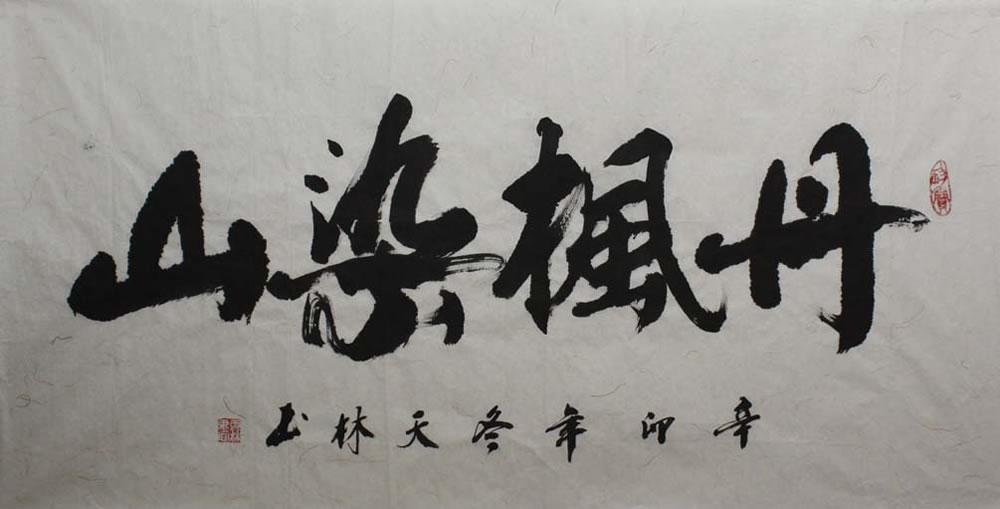 丹楓染山
辛卯年冬天林书